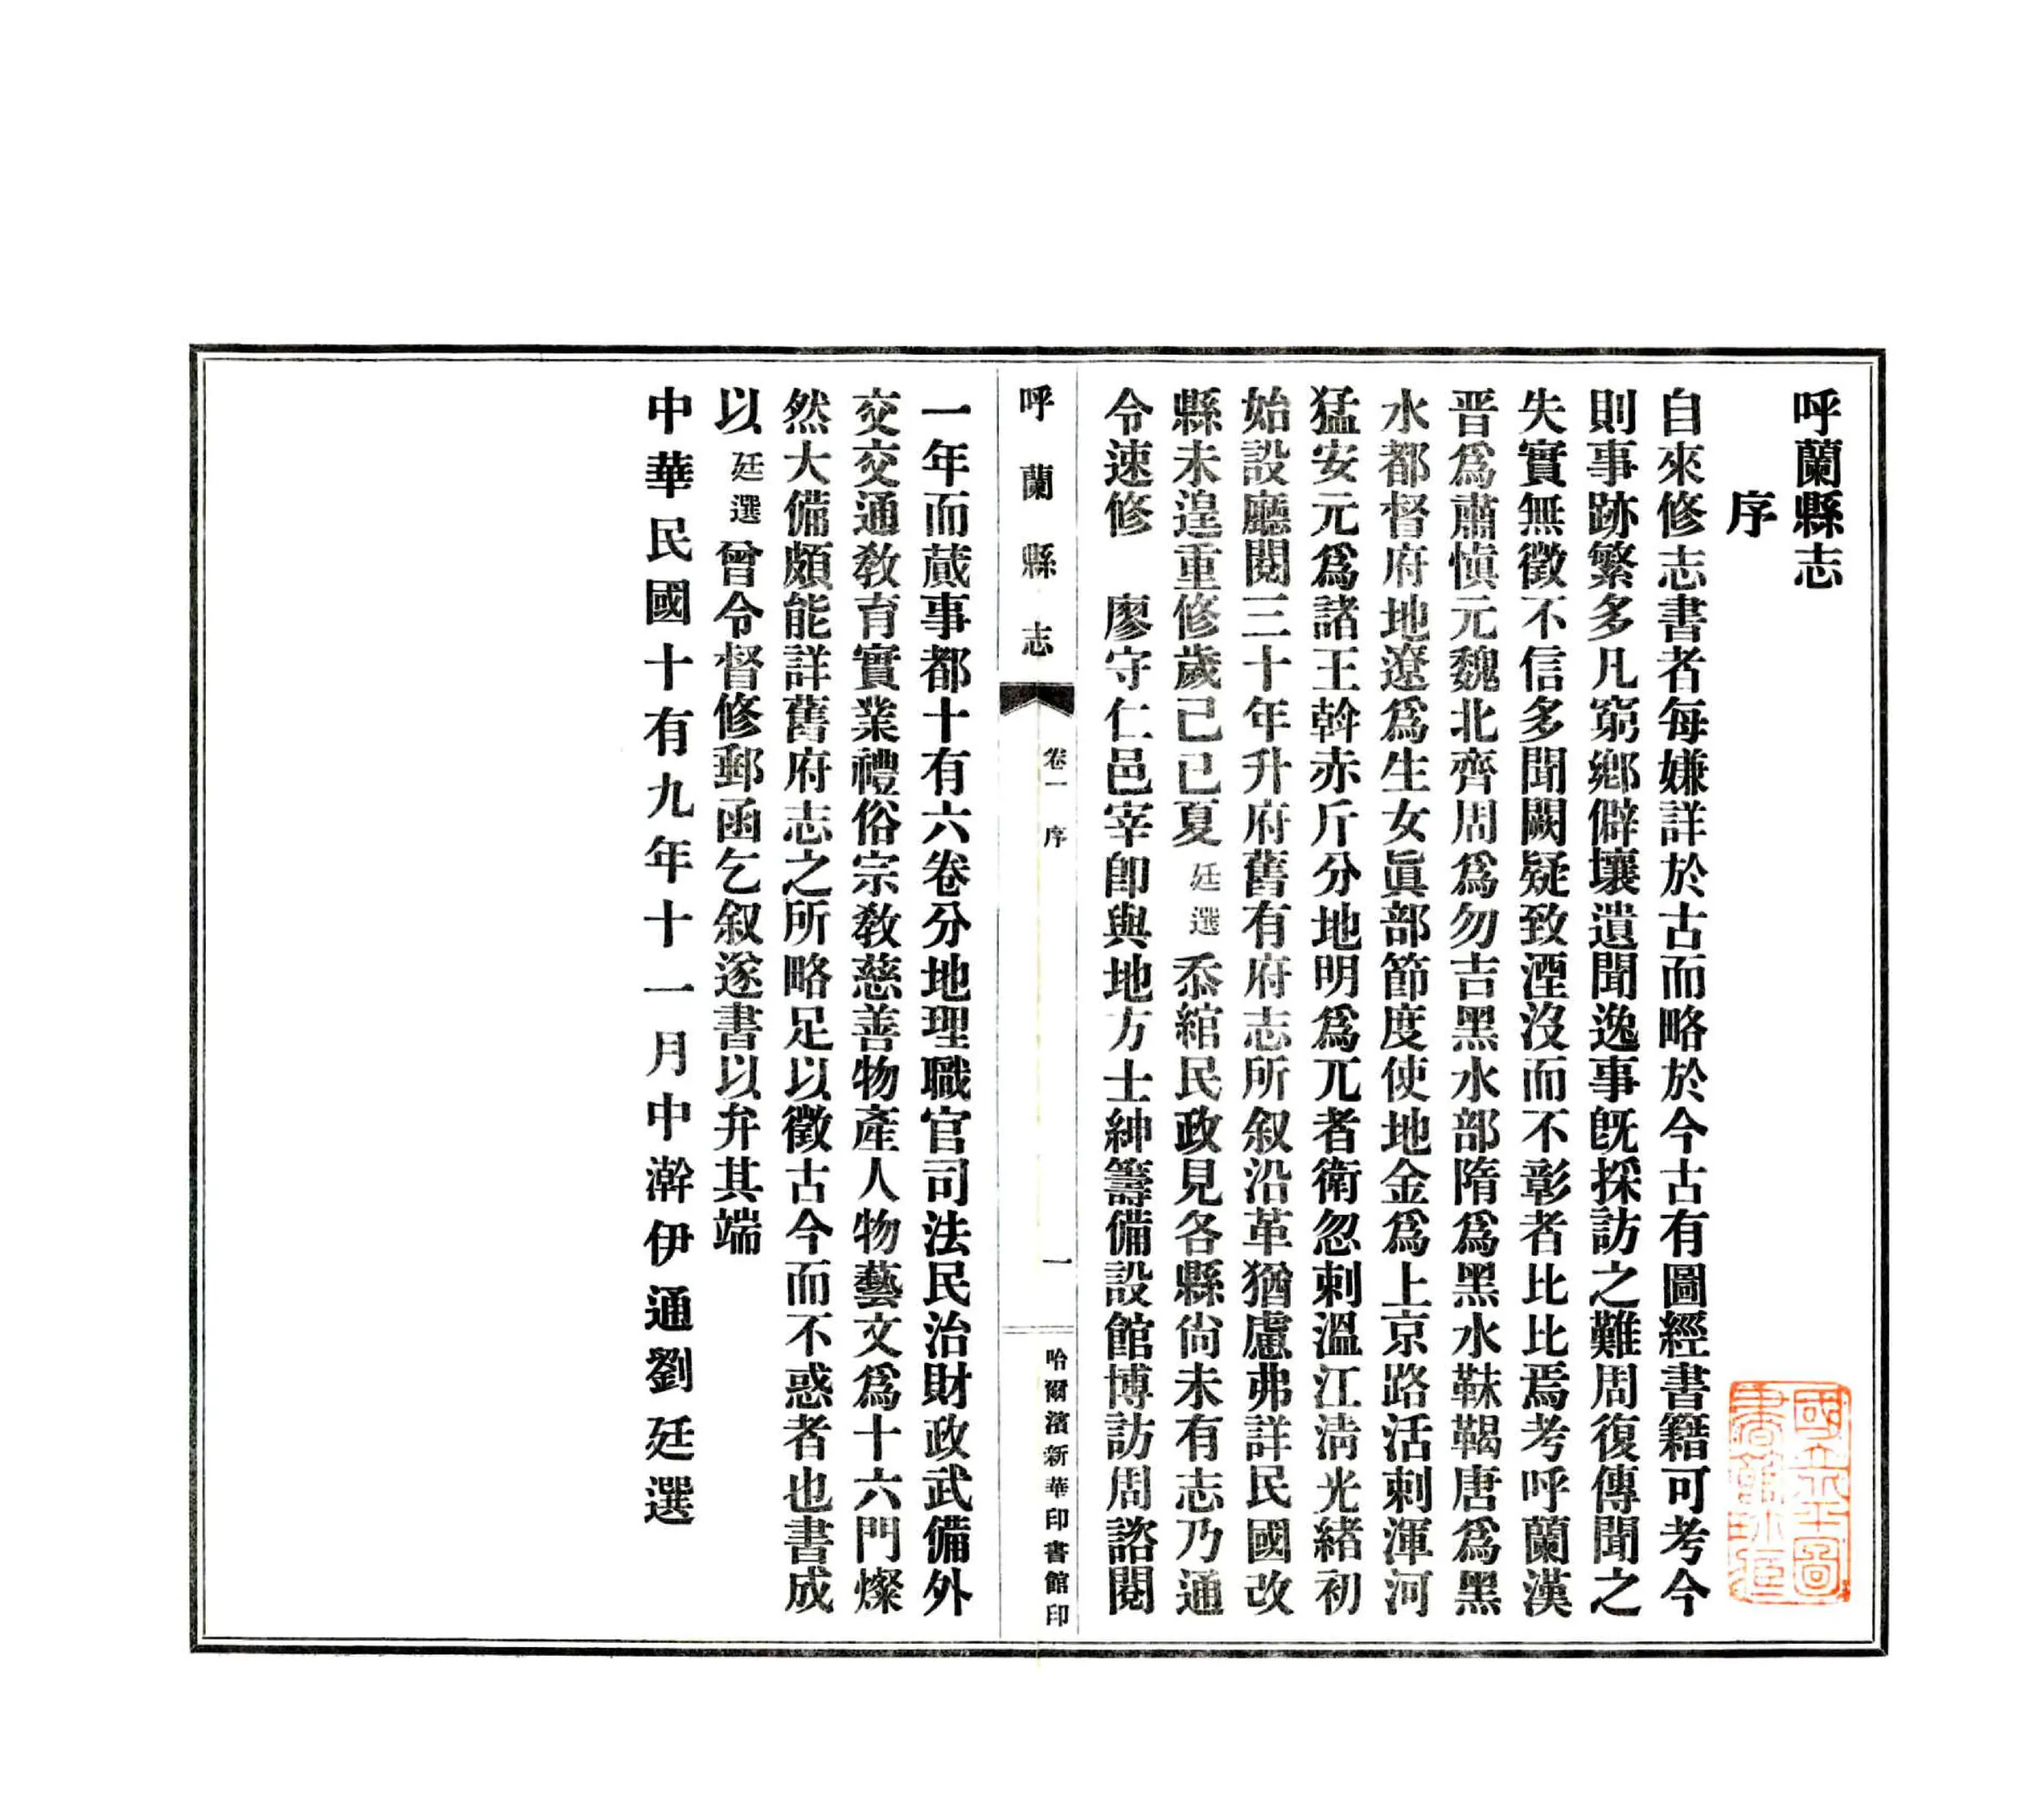 呼蘭縣志
序
自來修志書者每嫌詳於古而略於今古有圖經書籍可考今
則事跡繁多凡窮鄉僻壤遺聞逸事旣採訪之難周復傳聞之
失實無徵不信多聞闕疑致湮沒而不彰者比比焉考呼蘭漢
晋爲肅愼元魏北齊周爲勿吉黑水部隋爲黑水靺鞨唐爲黑
水都督府地遼爲生女眞部節度使地金爲上京路活剌渾河
猛安元爲諸王斡赤斤分地明爲兀者衛忽剌溫江淸光緒初
始設廳閱三十年升府舊有府志所叙沿革猶慮弗詳民國改
縣未遑重修歲己巳夏廷選忝綰民政見各縣尙未有志乃通
令速修　廖守仁邑宰卽與地方士紳籌備設館博訪周諮閱
呼蘭縣志
卷一　序
一
哈爾濱新華印書館印
一年而蕆事都十有六卷分地理職官司法民治財政武備外
交交通敎育實業禮俗宗敎慈善物產人物藝文爲十六門燦
然大備頗能詳舊府志之所略足以徵古今而不惑者也書成
以廷選曾令督修郵函乞叙遂書以弁其端
中華民國十有九年十一月中澣伊通劉廷選
國立北平圖
書館珍藏